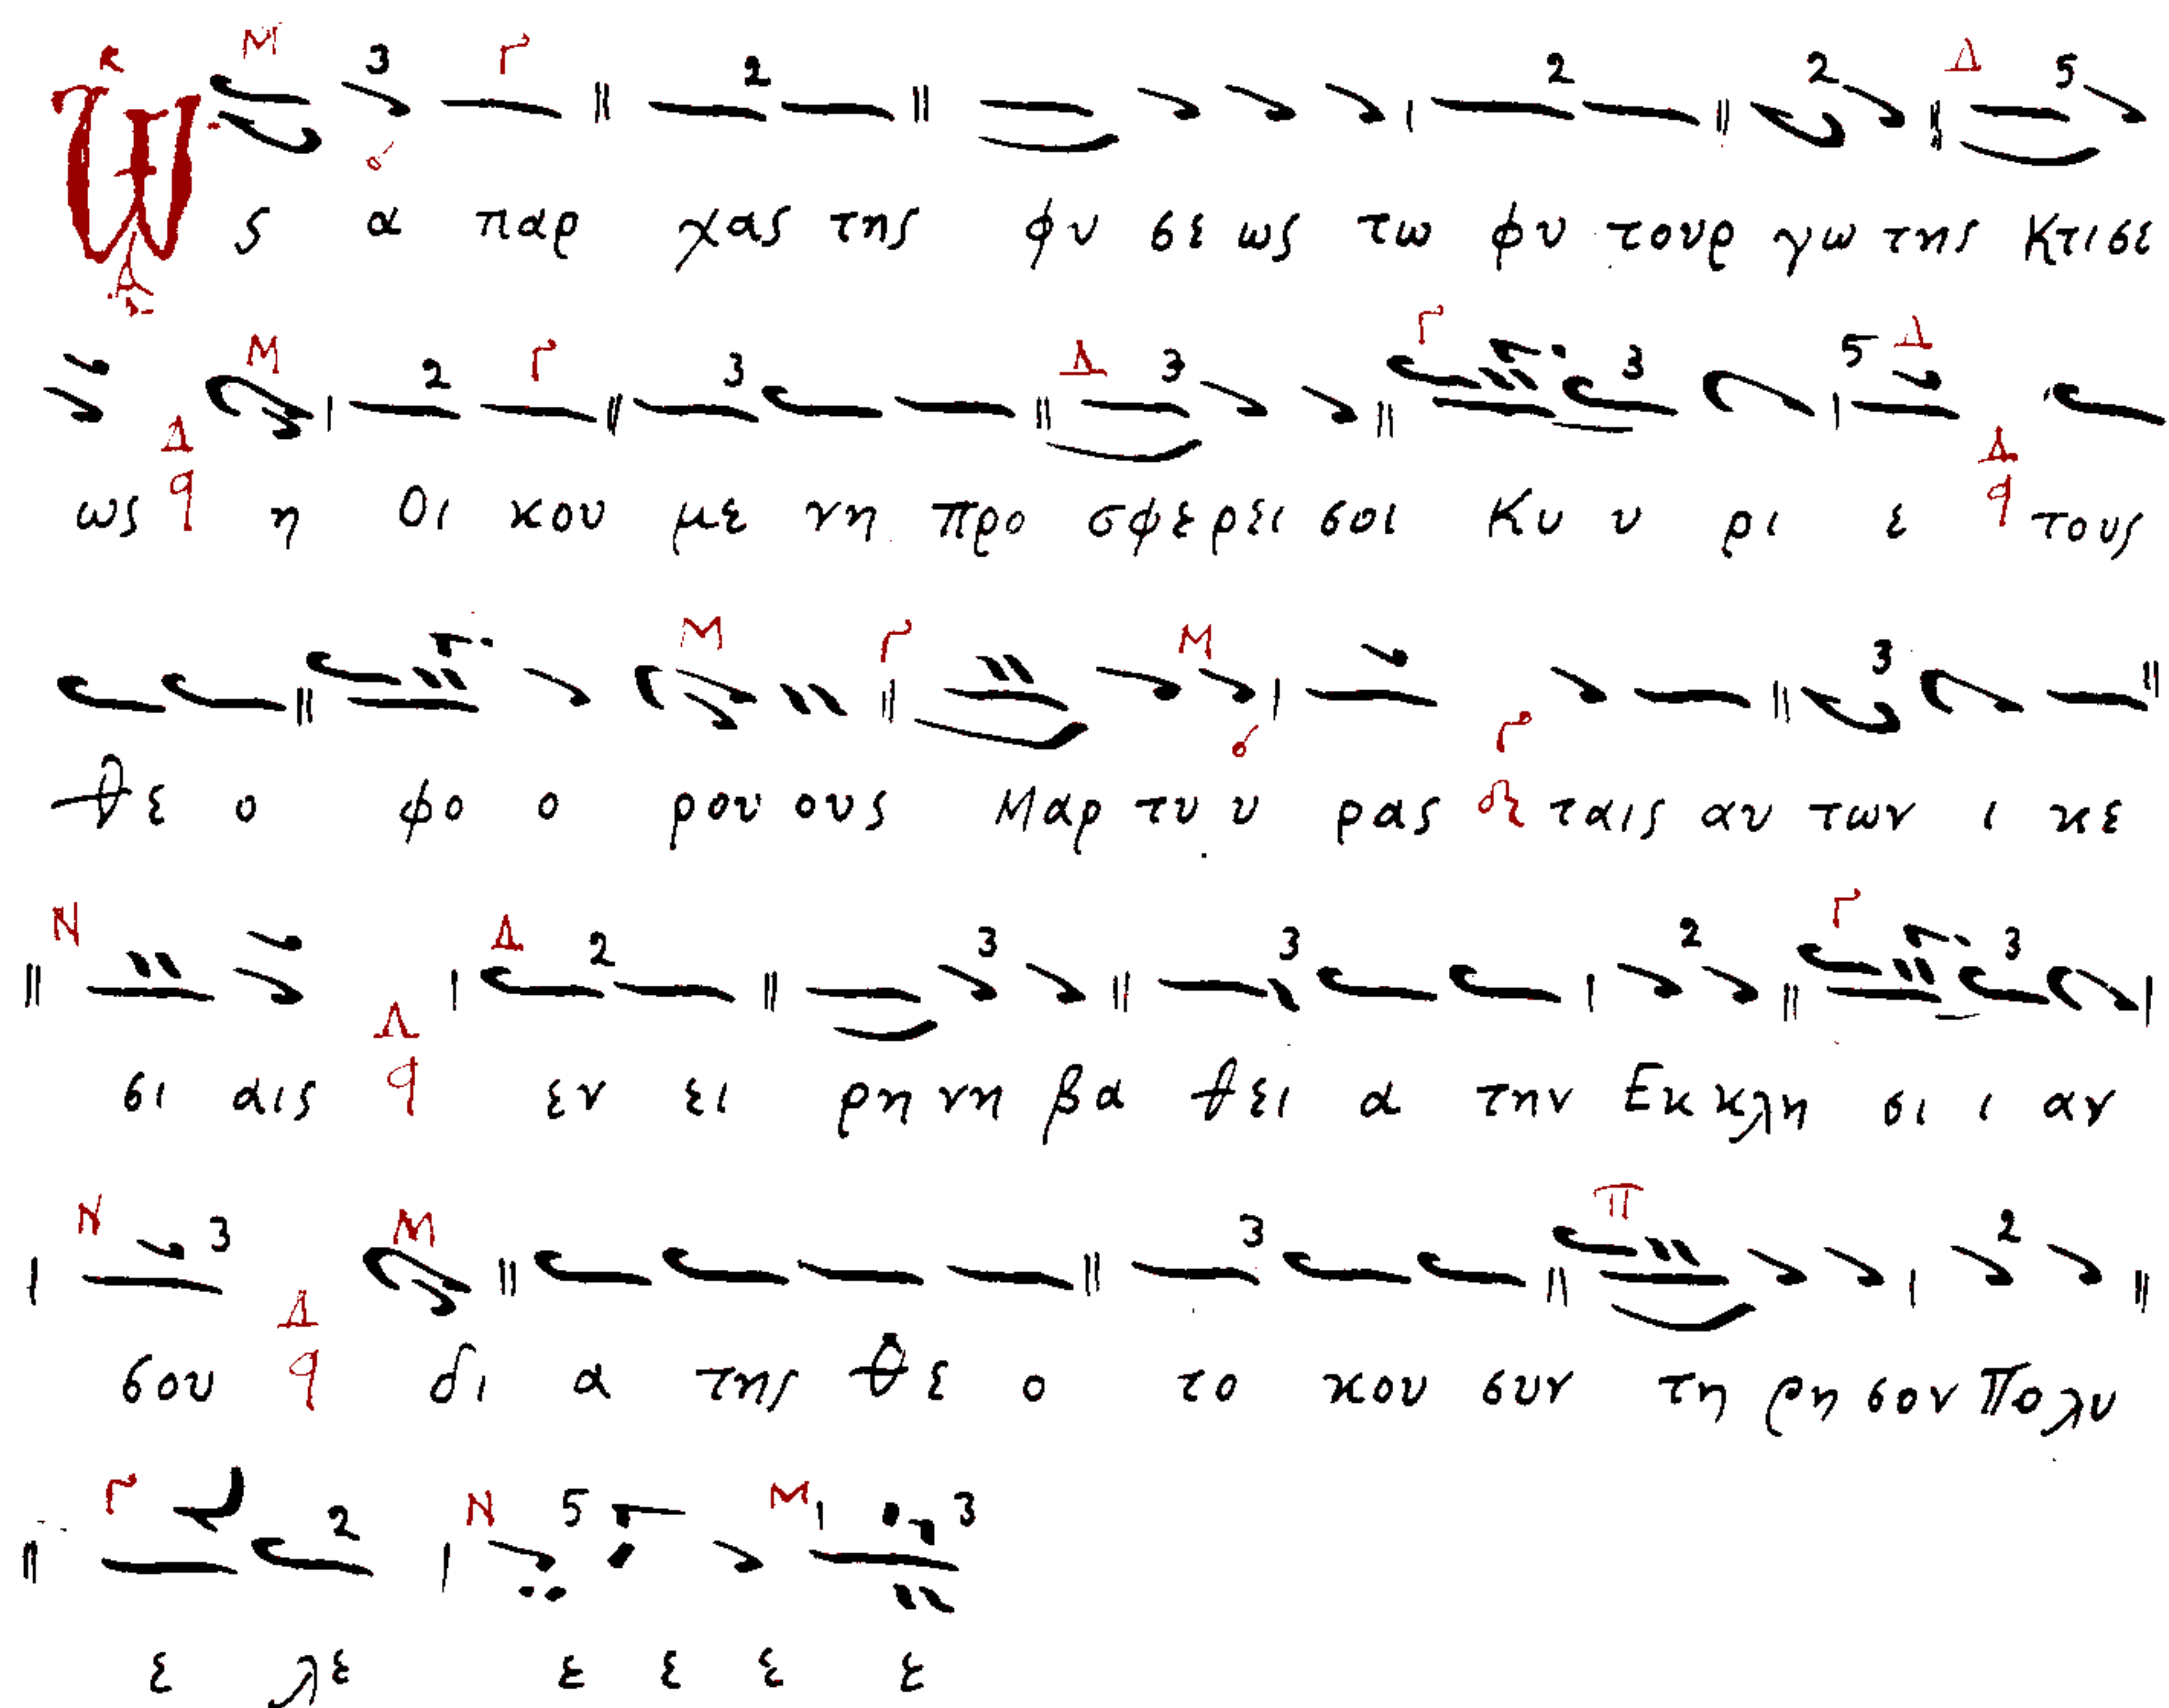 Ως α παρ χας της φυ σε ως τω φυ τουρ γω της Κτισε
ως η Οι κου με νη προ σφερει σοι Κυ υ ρι ε τους
θε ο φο ο ρου ους Μαρ τυ υ ρας ταις αυ των ι κε
σι αις εν ει ρη νη βα θει α την Εκ κλη σι ι αν
σου δι α της θε ο το κου συν τη ρη σον Πολυ
ε λε ε ε ε ε